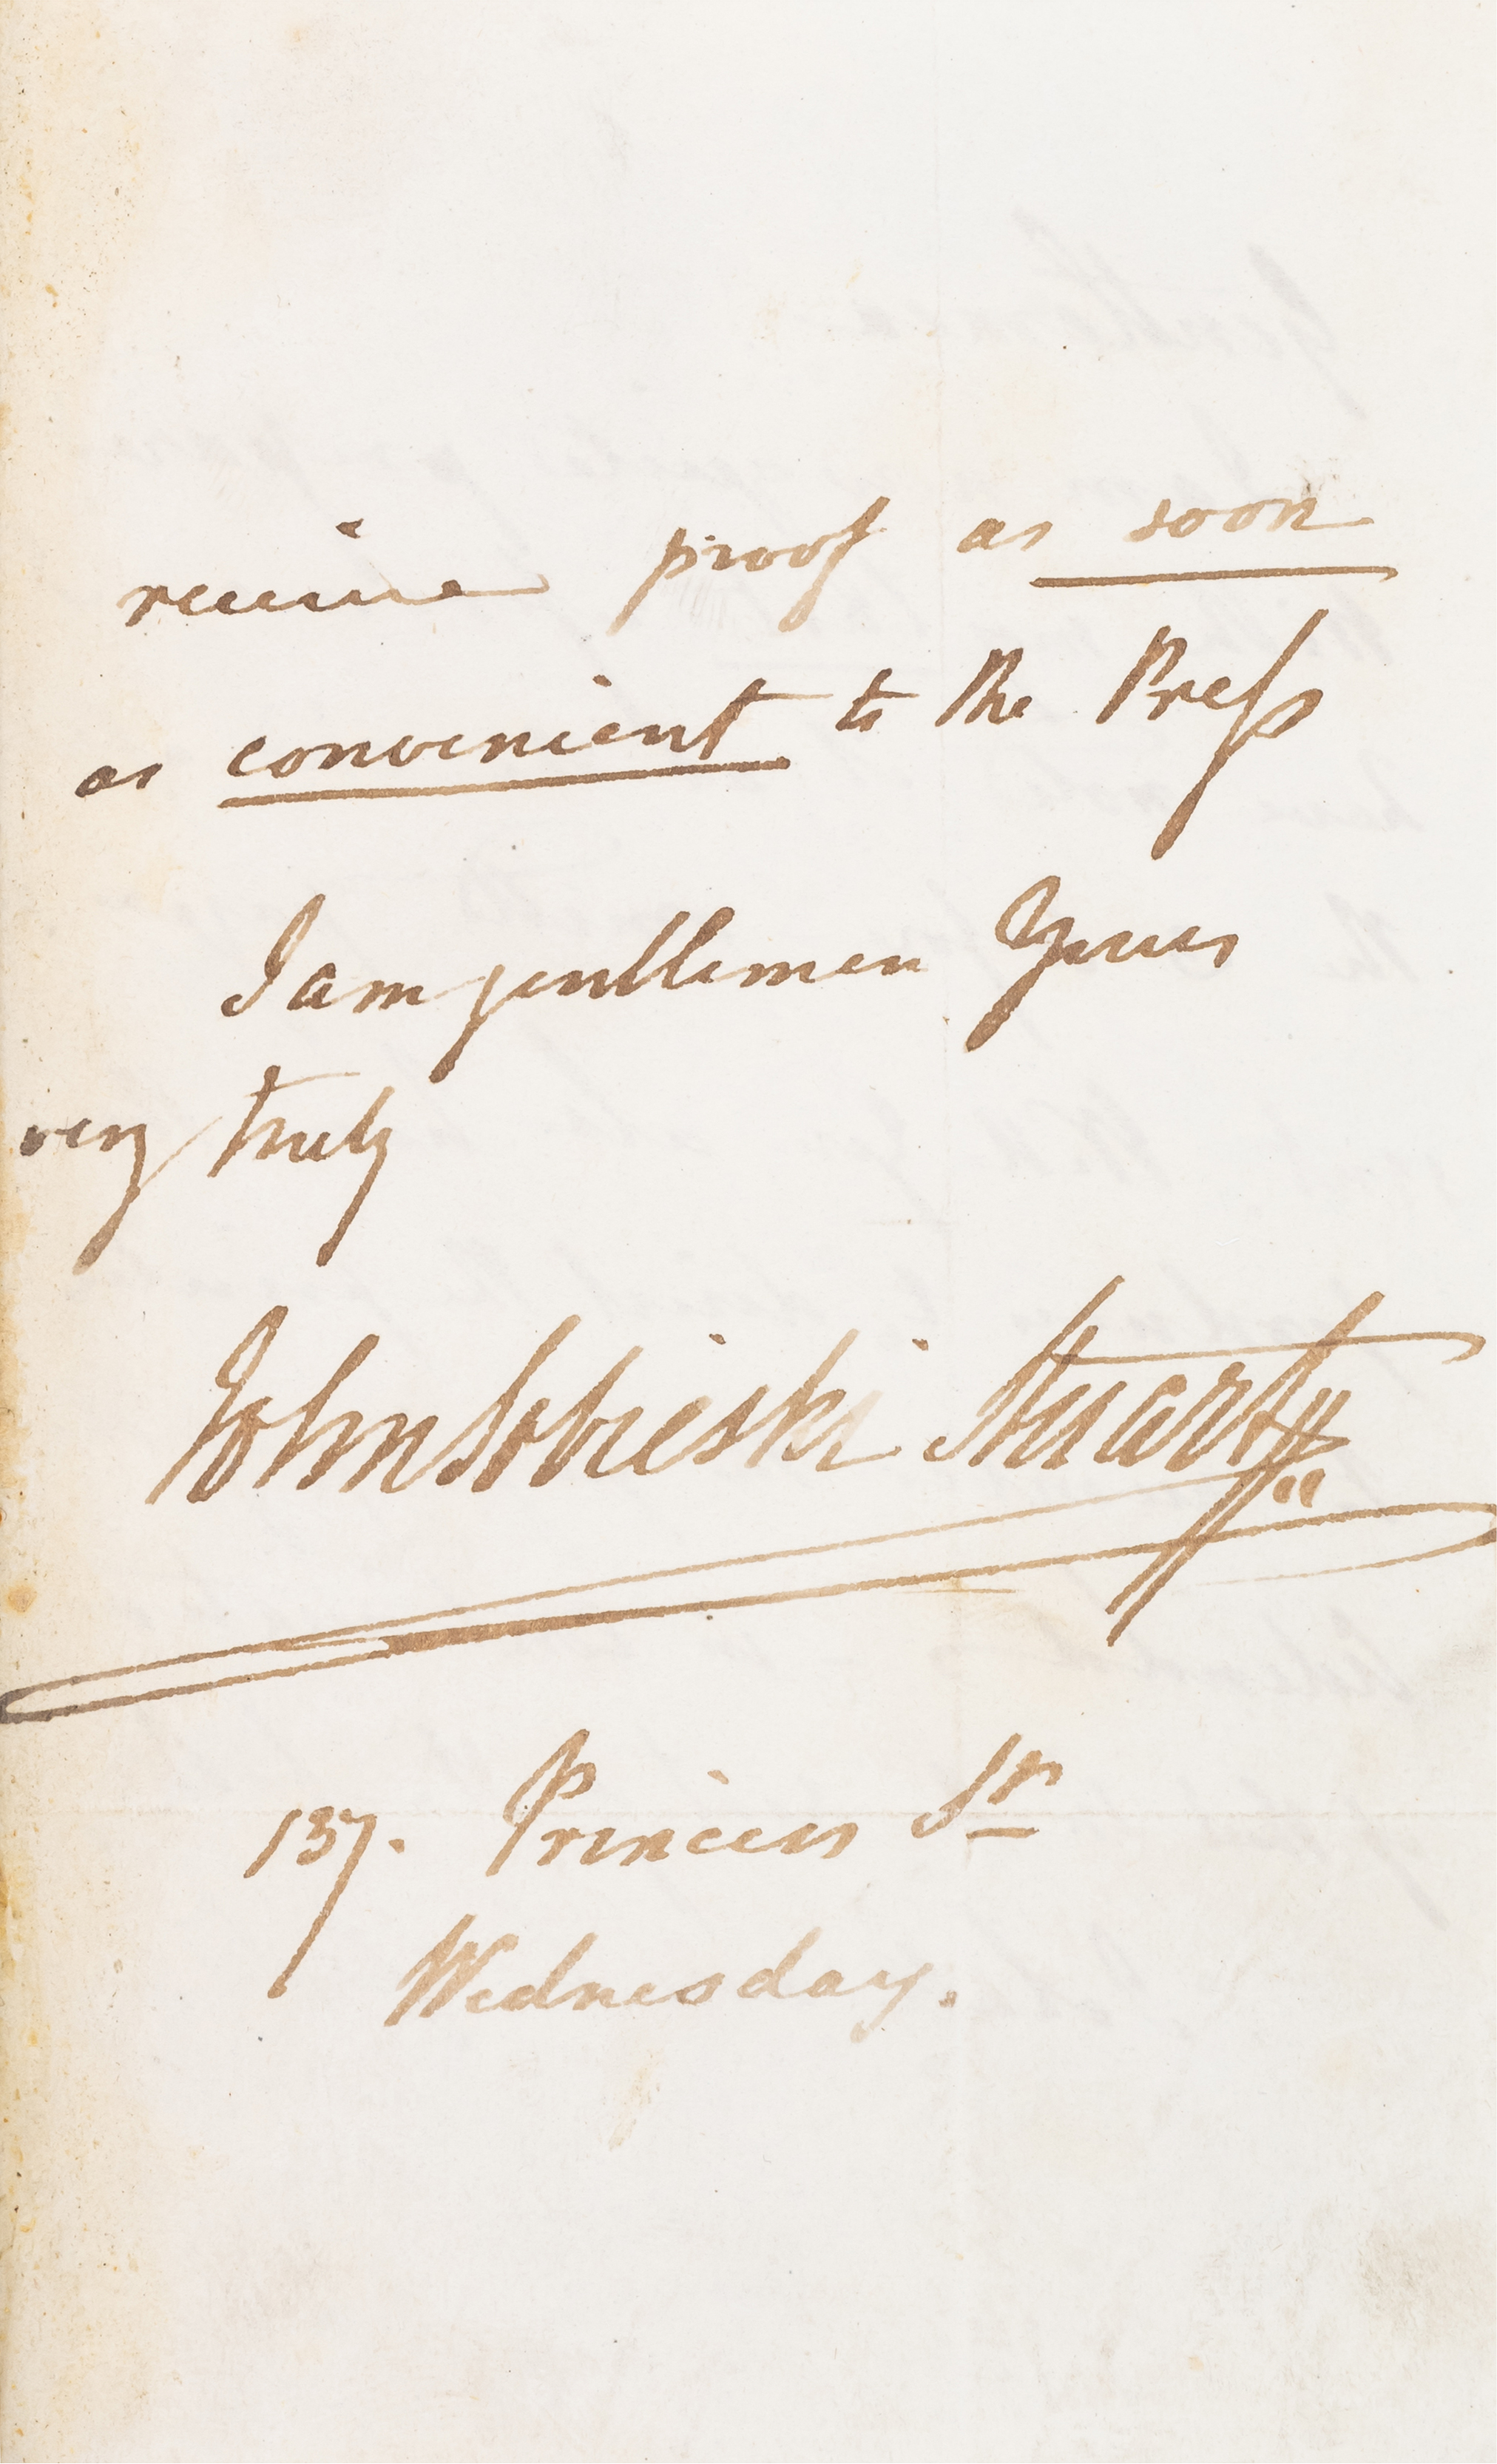 receive proof as soon
as convenient to the Press
I am gentlemen Yours
very truly
John Sobieski Stuart
137. Princes St
Wednesday.